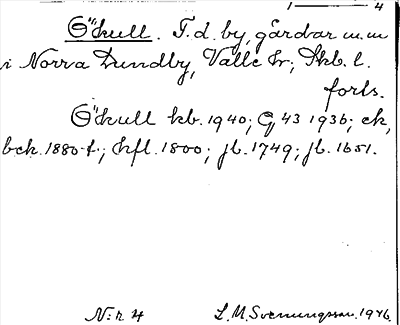 1 — 4
Ökull. F.d. by, gårdar m.m
i Norra Lundby, Valle hr; Skb. l.
forts.
Ökull kb. 1940; GJ 43 1936; ek,
bck. 1880-t.; hfl. 1800; jb. 1749; jb. 1651.
N:r 4 L. M. Svenungsson. 1946.